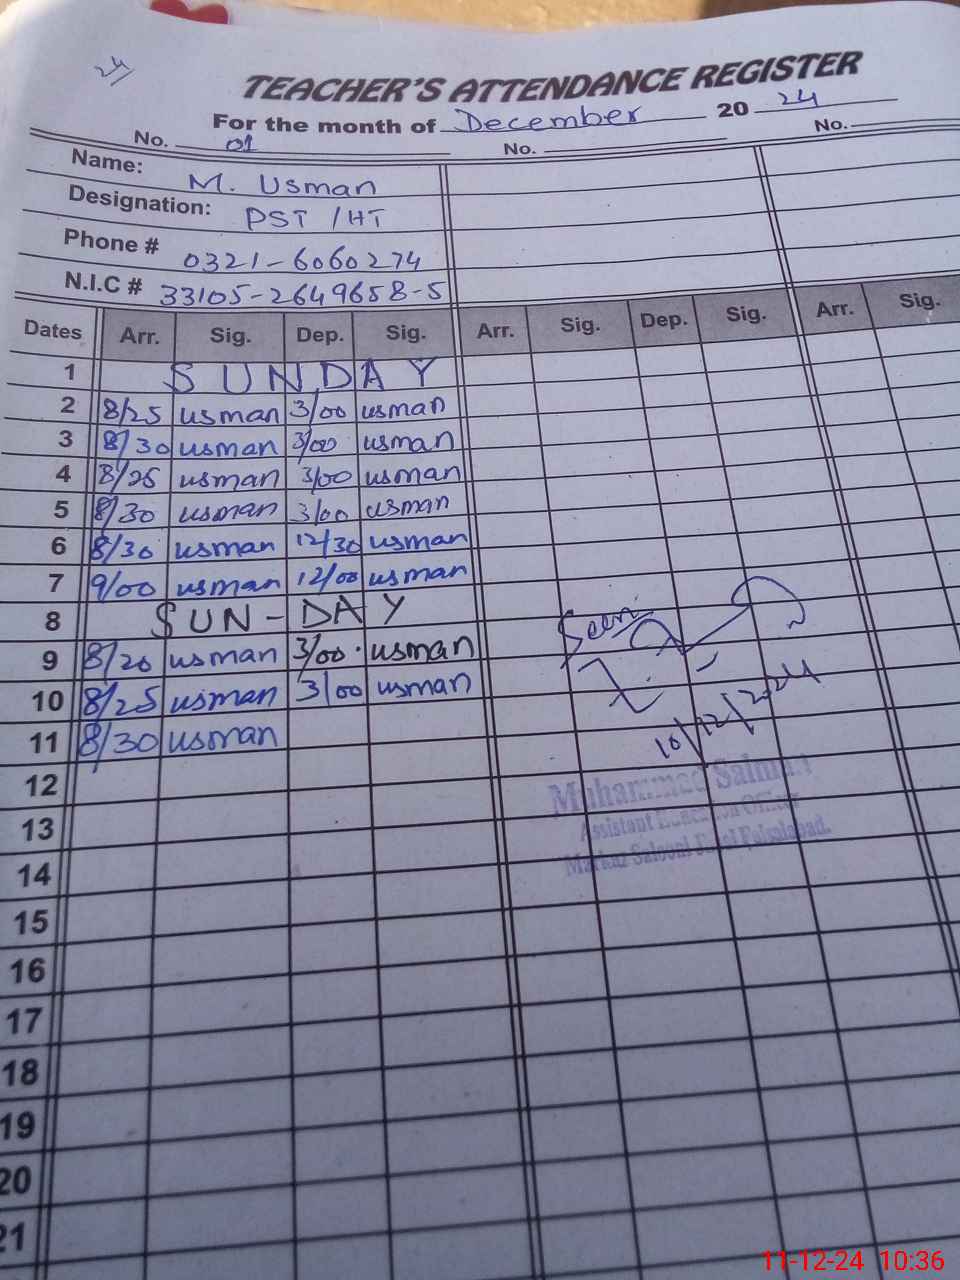 24
TEACHER'S ATTENDANCE REGISTER
For the month of December 2024
No. 01 No. No.
Name: M. Usman
Designation: PST / HT
Phone # 0321-6060274
N.I.C # 33105-2649658-5
Dates Arr. Sig. Dep. Sig. Arr. Sig. Dep. Sig. Arr. Sig.
1 SUNDAY
2 8/25 usman 3/00 usman
3 8/30 usman 3/00 usman
4 8/25 usman 3/00 usman
5 8/30 usman 3/00 usman
6 8/30 usman 12/30 usman
7 9/00 usman 12/00 usman
8 SUN-DAY
Seen
9 8/20 usman 3/00 usman
10 8/25 usman 3/00 usman
10/12/2024
11 8/30 usman
12
Muhammad Salman
Assistant Education Officer
13
Markaz Salooni Faisalabad.
14
15
16
17
18
19
20
21
11-12-24 10:36